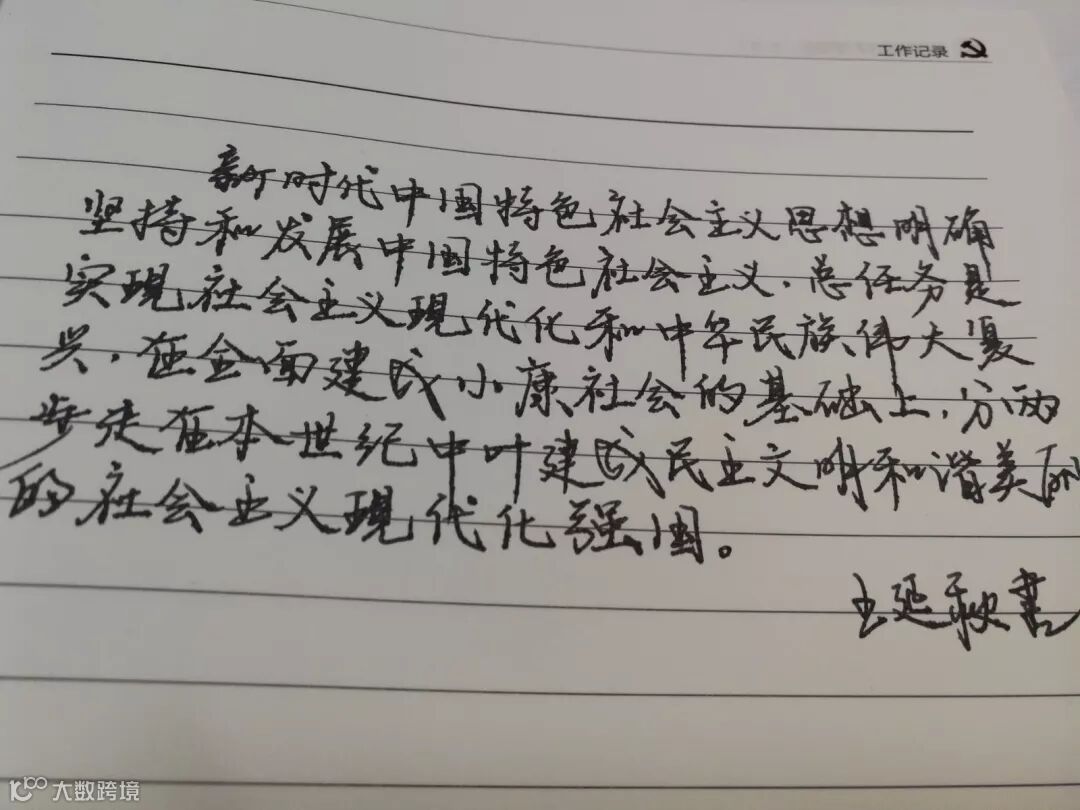 工作记录
新时代中国特色社会主义思想明确
坚持和发展中国特色社会主义.总任务是
实现社会主义现代化和中华民族伟大复
兴.在全面建成小康社会的基础上.分两
步走在本世纪中叶建成民主文明和谐美丽
的社会主义现代化强国。
王延秋書
大数跨境